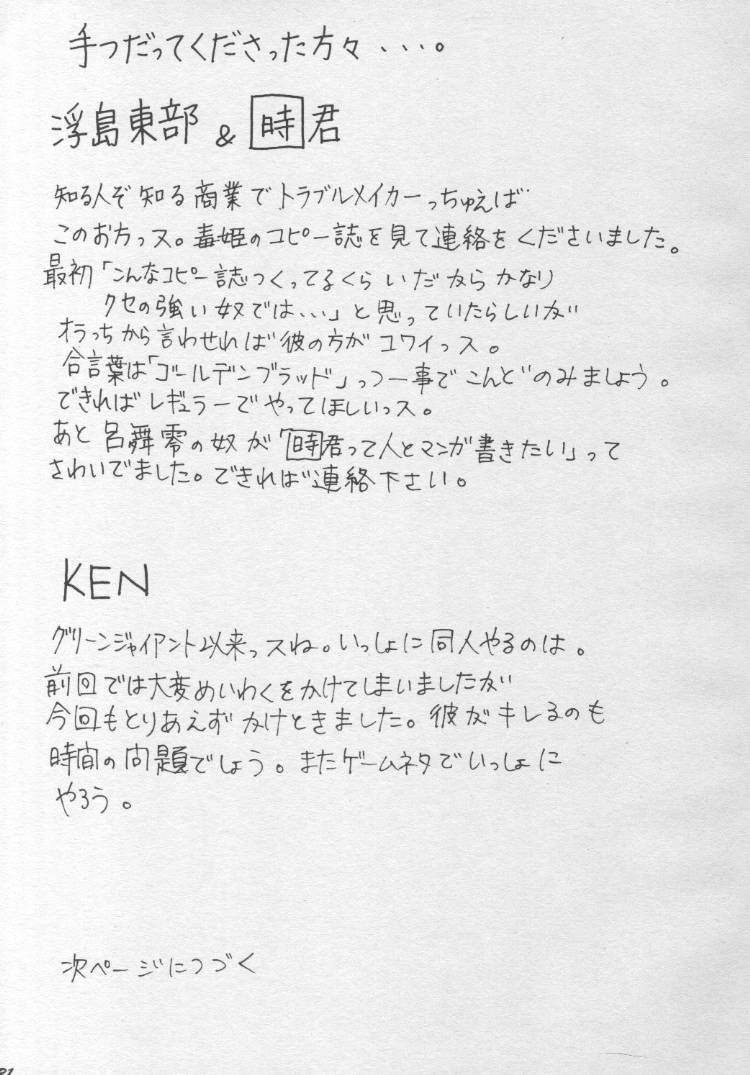 手つだってくださった方々・・・。
浮島東部 & 時君
知る人ぞ知る商業でトラブルメイカーっちゅえば
このお方っス。毒姫のコピー誌を見て連絡をくださいました。
最初「こんなコピー誌つくってるくらいだからかなり
クセの強い奴では、、、」と思っていたらしいが
オラっちから言わせれば彼の方がコワイっス。
合言葉は「ゴールデンブラッド」っつー事でこんどのみましょう。
できればレギュラーでやってほしいっス。
あと呂舞零の奴が「時君って人とマンガ書きたい」って
さわいでました。できれば連絡下さい。
KEN
グリーンジャイアント以来っスね。いっしょに同人やるのは。
前回では大変めいわくをかけてしまいましたが
今回もとりあえずかけときました。彼がキレるのも
時間の問題でしょう。またゲームネタでいっしょに
やろう。
次ページにつづく